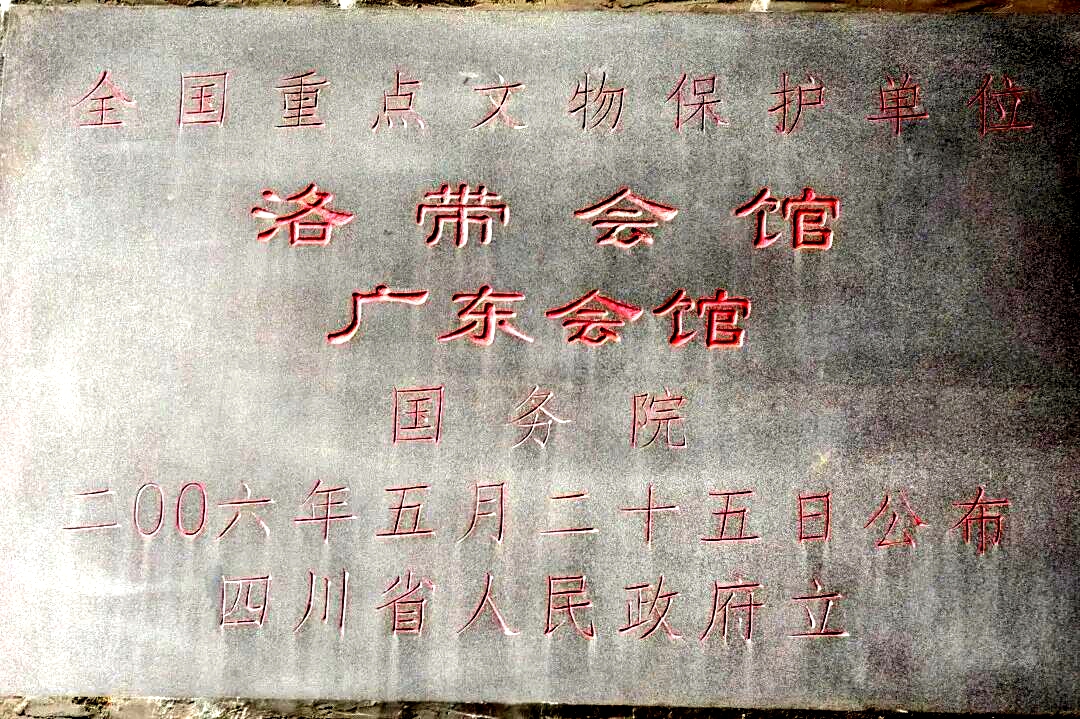 全国重点文物保护单位
洛带会馆
广东会馆
国务院
二00六年五月二十五日公布
四川省人民政府立